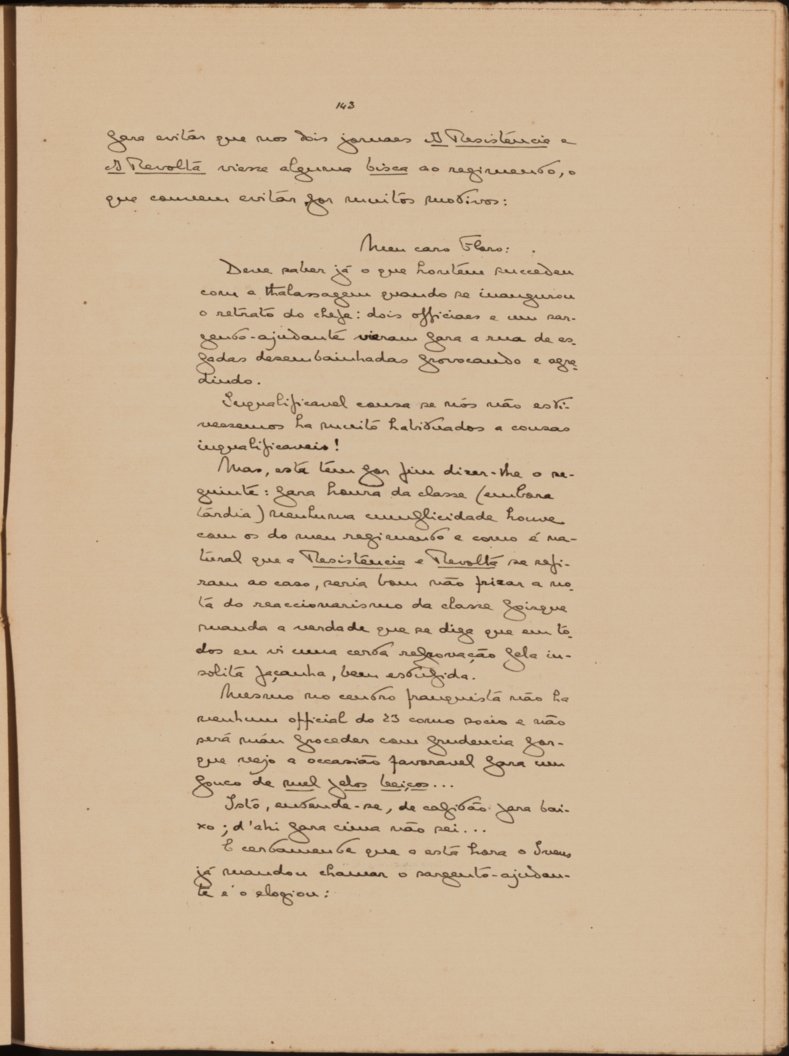 143
para evitár que nos dois jornaes A Resistencia e
A Revolta viesse alguma bisca ao regimento, o
que convem evitár por muitos motivos:
Meu caro Floro:
Deve saber já o que hontem succedeu
com a thalassagem quando se inaugurou
o retrato do chefe: dois officiaes e um sar-
gento-ajudante vieram para a rua de es-
padas desembainhadas provocando e agre-
dindo.
Inqualificavel cousa se nós não esti-
vessemos ha muito habituados a cousas
inqualificaveis!
Mas, esta tem por fim dizer-lhe o se-
guinte: para honra da classe (embora
tárdia) nenhuma cumplicidade houve
com os do meu regimento e como é na-
tural que a Resistencia e Revolta se refi-
ram ao caso, seria bom não frizar a no-
ta do reaccionarismo da classe porque
manda a verdade que se diga que em to-
dos eu vi uma certa reprovação pela in-
solita façanha, bem estupida.
Mesmo no centro franquista não ha
nenhum official do 23 como socio e não
será máu proceder com prudencia por-
que vejo a occasião favoravel para um
pouco de mel pelos beiços...
Isto, entende-se, de capitão para bai-
xo; d'ahi para cima não sei...
E certamente que a esta hora o Ivens
já mandou chamar o sargento-ajudan-
te e o elogiou: